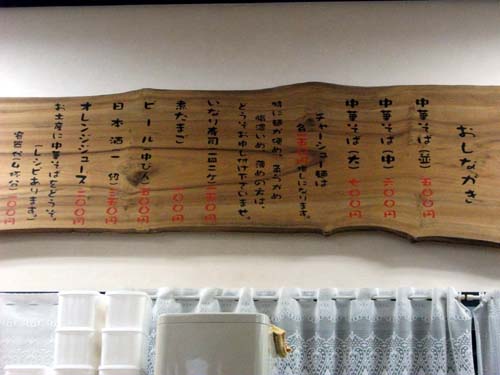 おしながき
中華そば(並) 五〇〇円
中華そば(中) 六〇〇円
中華そば(大) 七〇〇円
チャーシュー麺は
各二五〇円増しになります。
特に麺が硬め、柔らかめ
脂濃いめ、薄めの方は、
どうぞお申し付け下さいませ。
いなり寿司 一皿二ケ 二〇〇円
煮たまご 一〇〇円
ビール中びん 五〇〇円
日本酒一合 三五〇円
オレンジジュース 二〇〇円
お土産に中華そばをどうぞ。
(レシピあります。)
〇〇円